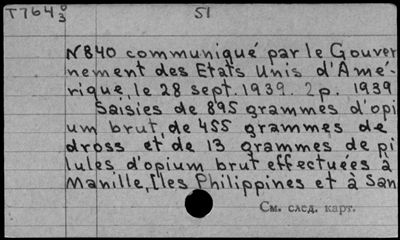 T7640/3 51
N840 communiqué par le Gouver
nement des Etats Unis d'Amé-
rique, le 28 sept. 1939. 2p. 1939
Saisies de 895 grammes d'opi
um brut, de 455 grammes de
dross et de 13 grammes de pi
lules d'opium brut effectuées à
Manille, Iles Philippines et à San
См. след. карт.